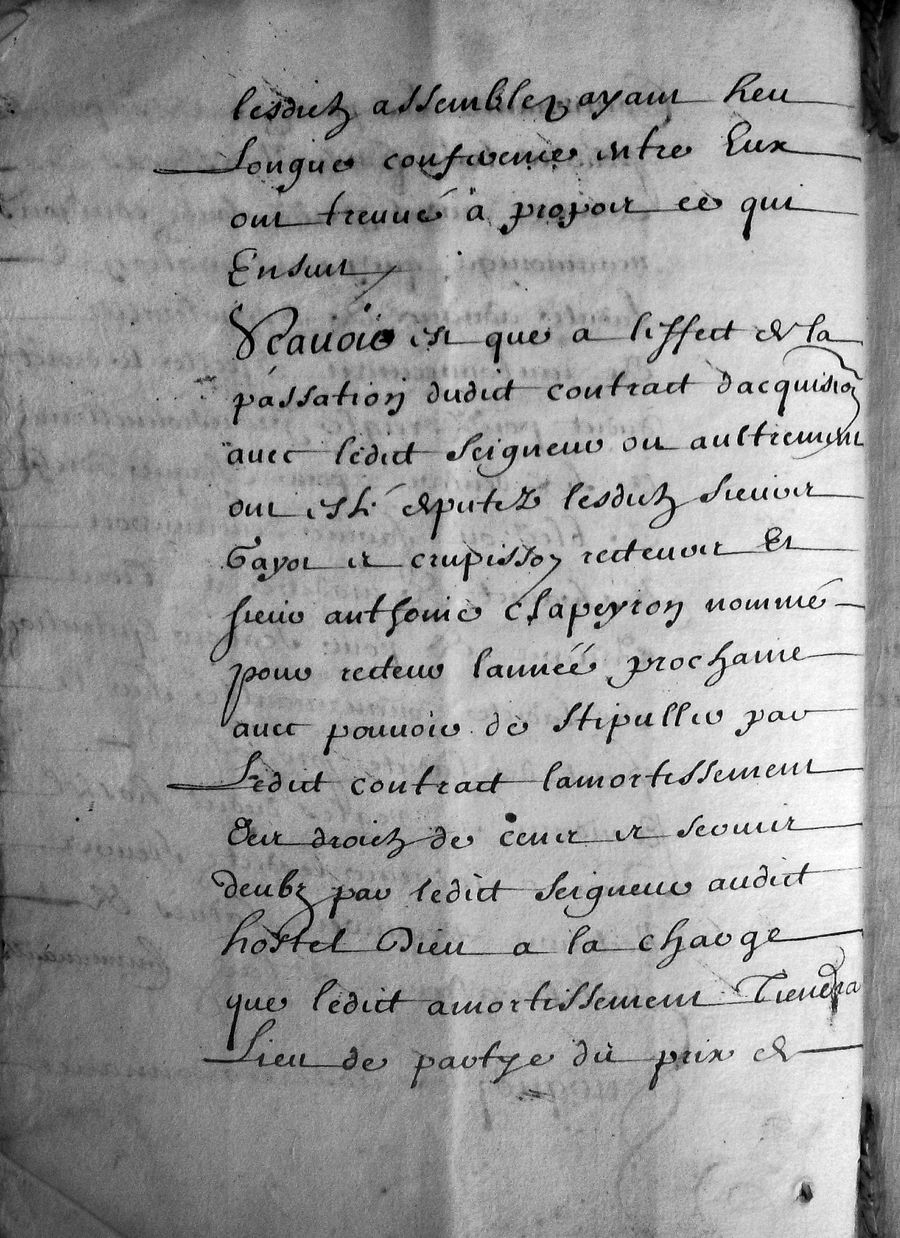 lesdictz assemblez ayant heu
Longue conference entre Eux
ont treuué a propos ce qui
Ensuit
Scauoir est que a leffect de la
passation dudict contract dacquisition
auec ledict seigneur ou aultrement
ont esté deputez lesdictz sieurs
Gayot et crupisson recteurs Et
sieur anthoine clapeyron nommé
pour recteur lannéé prochaine
auec pouuoir de stipuller par
Ledict contract lamortissement
Des droictz de cens et seruis
deubz par ledict seigneur audict
hostel Dieu a la charge
que ledict amortissement Tiendra
Lieu de partye du prix de